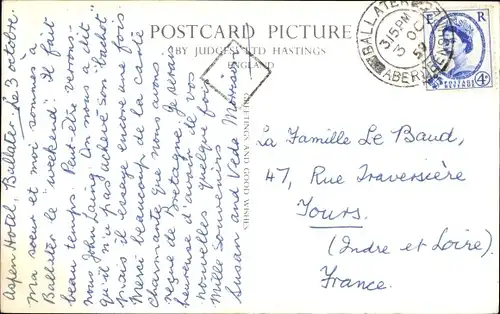 POSTCARD PICTURE
BY JUDGES LTD HASTINGS
ENGLAND
GREETINGS AND GOOD WISHES
BALLATER
3 15 PM
3 OC
59
E R
POSTAGE REVENUE
4D
Aspen Hotel, Ballater le 3 octobre
Ma soeur et moi sommes à
Ballater le "weekend". Il fait
beau temps. Peut-être verrons-
nous John Laing. On nous dit
qu'il n'a pas achevé son "bachot"
mais il essaye encore une fois
Merci beaucoup de la carte
charmante que nous avons
reçue de Bretagne. Je serais
heureuse d'avoir de vos
nouvelles quelque fois
Mille souvenirs
Susan and Veda
La Famille Le Baud,
47, Rue Traversière
Tours.
(Indre et Loire).
France.